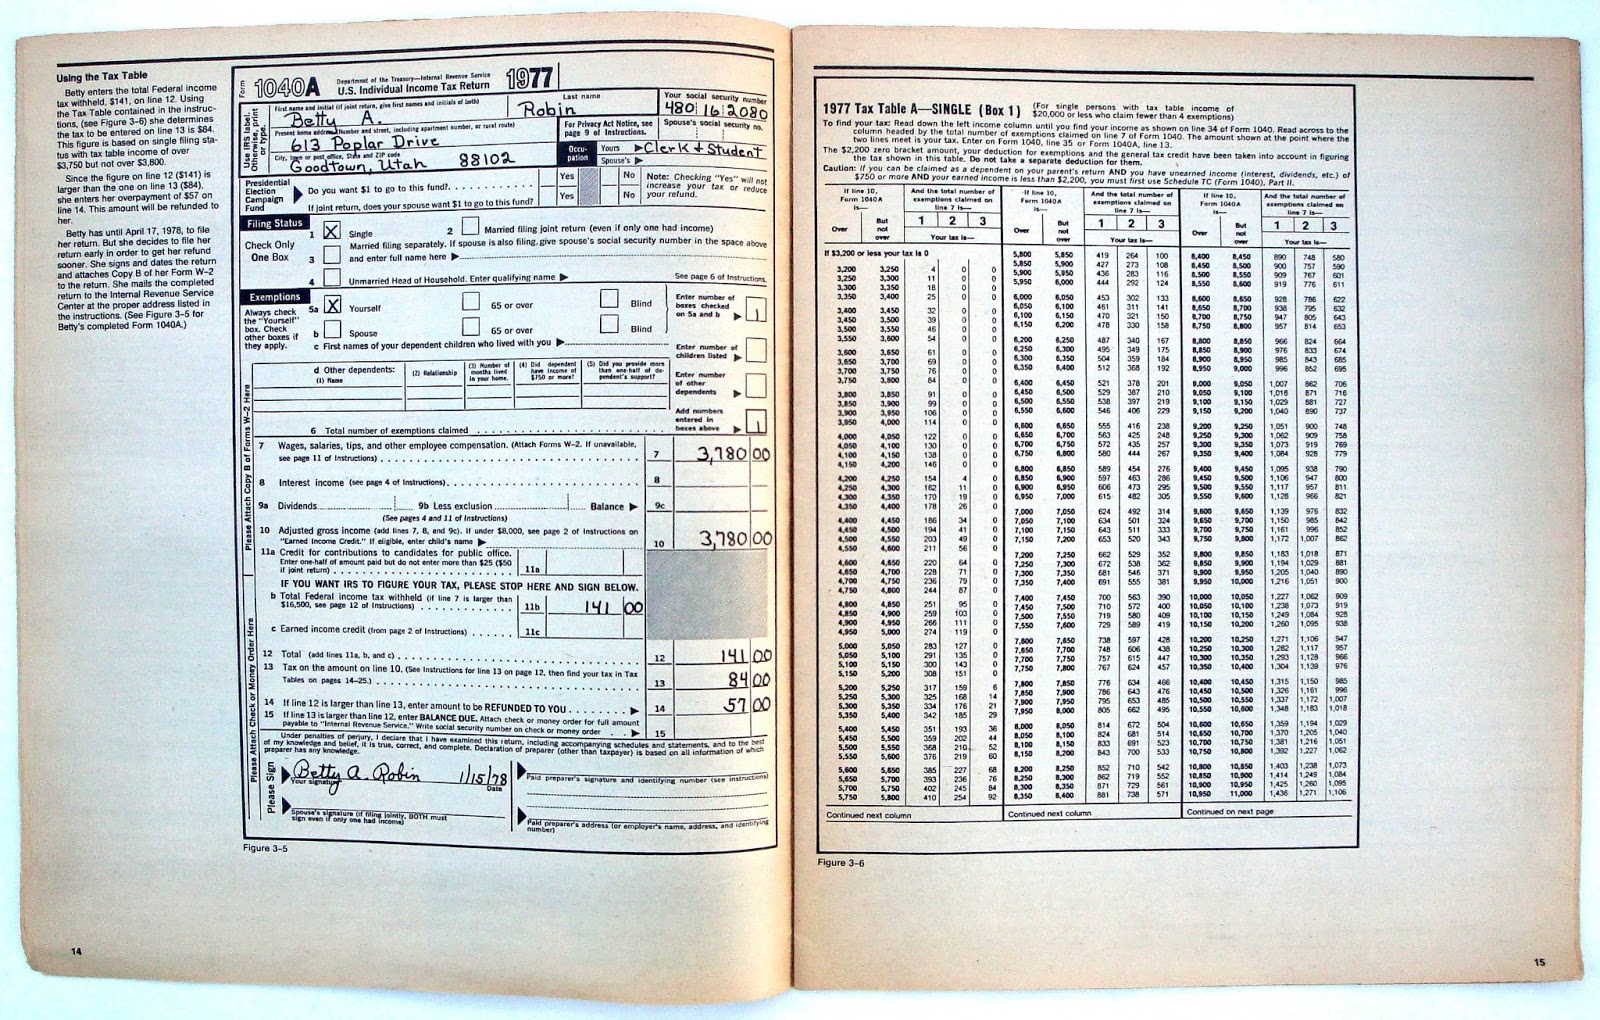 Using the Tax Table
Betty enters the total Federal income
tax withheld, $141, on line 12. Using
the Tax Table contained in the instruc-
tions, (see Figure 3-6) she determines
the tax to be entered on line 13 is $84.
This figure is based on single filing sta-
tus with tax table income of over
$3,750 but not over $3,800.
Since the figure on line 12 ($141) is
larger than the one on line 13 ($84),
she enters her overpayment of $57 on
line 14. This amount will be refunded to
her.
Betty has until April 17, 1978, to file
her return. But she decides to file her
return early in order to get her refund
sooner. She signs and dates the return
and attaches Copy B of her Form W-2
to the return. She mails the completed
return to the Internal Revenue Service
Center at the proper address listed in
the instructions. (See Figure 3-5 for
Betty's completed Form 1040A.)
Form 1040A Department of the Treasury—Internal Revenue Service
U.S. Individual Income Tax Return 1977
Use IRS label. Otherwise, print or type.
First name and initial (if joint return, give first names and initials of both) Last name Your social security number
Betty A. Robin 480 16 2080
Present home address (Number and street, including apartment number, or rural route)
613 Poplar Drive
For Privacy Act Notice, see page 9 of Instructions.
Spouse's social security no.
City, town or post office, State and ZIP code
Goodtown, Utah 88102
Occu-pation Yours Clerk & Student
Spouse's
Presidential Election Campaign Fund
Do you want $1 to go to this fund? Yes No
If joint return, does your spouse want $1 to go to this fund? Yes No
Note: Checking "Yes" will not increase your tax or reduce your refund.
Filing Status
Check Only One Box
1 X Single 2 Married filing joint return (even if only one had income)
3 Married filing separately. If spouse is also filing, give spouse's social security number in the space above
and enter full name here
4 Unmarried Head of Household. Enter qualifying name See page 6 of Instructions.
Exemptions
Always check the "Yourself" box. Check other boxes if they apply.
5a X Yourself 65 or over Blind
b Spouse 65 or over Blind
Enter number of boxes checked on 5a and b 1
c First names of your dependent children who lived with you
Enter number of children listed
d Other dependents: (1) Name (2) Relationship (3) Number of months lived in your home. (4) Did dependent have income of $750 or more? (5) Did you provide more than one-half of dependent's support?
Enter number of other dependents
6 Total number of exemptions claimed
Add numbers entered in boxes above 1
Please Attach Copy B of Forms W-2 Here
7 Wages, salaries, tips, and other employee compensation. (Attach Forms W-2. If unavailable,
see page 11 of Instructions) 7 3,780 00
8 Interest income (see page 4 of Instructions) 8
9a Dividends 9b Less exclusion Balance 9c
(See pages 4 and 11 of Instructions)
10 Adjusted gross income (add lines 7, 8, and 9c). If under $8,000, see page 2 of Instructions on
"Earned Income Credit." If eligible, enter child's name 10 3,780 00
11a Credit for contributions to candidates for public office.
Enter one-half of amount paid but do not enter more than $25 ($50
if joint return) 11a
IF YOU WANT IRS TO FIGURE YOUR TAX, PLEASE STOP HERE AND SIGN BELOW.
b Total Federal income tax withheld (if line 7 is larger than
$16,500, see page 12 of Instructions) 11b 141 00
c Earned income credit (from page 2 of Instructions) 11c
Please Attach Check or Money Order Here
12 Total (add lines 11a, b, and c) 12 141 00
13 Tax on the amount on line 10. (See Instructions for line 13 on page 12, then find your tax in Tax
Tables on pages 14-25.) 13 84 00
14 If line 12 is larger than line 13, enter amount to be REFUNDED TO YOU 14 57 00
15 If line 13 is larger than line 12, enter BALANCE DUE. Attach check or money order for full amount
payable to "Internal Revenue Service." Write social security number on check or money order 15
Under penalties of perjury, I declare that I have examined this return, including accompanying schedules and statements, and to the best
of my knowledge and belief, it is true, correct, and complete. Declaration of preparer (other than taxpayer) is based on all information of which
preparer has any knowledge.
Please Sign
Betty A. Robin 1/15/78
Your signature Date
Paid preparer's signature and identifying number (see instructions)
Spouse's signature (if filing jointly, BOTH must
sign even if only one had income)
Paid preparer's address (or employer's name, address, and identifying
number)
Figure 3-5
14
1977 Tax Table A—SINGLE (Box 1) (For single persons with tax table income of
$20,000 or less who claim fewer than 4 exemptions)
To find your tax: Read down the left income column until you find your income as shown on line 34 of Form 1040. Read across to the
column headed by the total number of exemptions claimed on line 7 of Form 1040. The amount shown at the point where the
two lines meet is your tax. Enter on Form 1040, line 35 or Form 1040A, line 13.
The $2,200 zero bracket amount, your deduction for exemptions and the general tax credit have been taken into account in figuring
the tax shown in this table. Do not take a separate deduction for them.
Caution: If you can be claimed as a dependent on your parent's return AND you have unearned income (interest, dividends, etc.) of
$750 or more AND your earned income is less than $2,200, you must first use Schedule TC (Form 1040), Part II.
If line 10, Form 1040A is— And the total number of exemptions claimed on line 7 is—
Over But not over 1 2 3
Your tax is—
If $3,200 or less your tax is 0
3,200 3,250 4 0 0
3,250 3,300 11 0 0
3,300 3,350 18 0 0
3,350 3,400 25 0 0
3,400 3,450 32 0 0
3,450 3,500 39 0 0
3,500 3,550 46 0 0
3,550 3,600 54 0 0
3,600 3,650 61 0 0
3,650 3,700 69 0 0
3,700 3,750 76 0 0
3,750 3,800 84 0 0
3,800 3,850 91 0 0
3,850 3,900 99 0 0
3,900 3,950 106 0 0
3,950 4,000 114 0 0
4,000 4,050 122 0 0
4,050 4,100 130 0 0
4,100 4,150 138 0 0
4,150 4,200 146 0 0
4,200 4,250 154 4 0
4,250 4,300 162 11 0
4,300 4,350 170 19 0
4,350 4,400 178 26 0
4,400 4,450 186 34 0
4,450 4,500 194 41 0
4,500 4,550 203 49 0
4,550 4,600 211 56 0
4,600 4,650 220 64 0
4,650 4,700 228 71 0
4,700 4,750 236 79 0
4,750 4,800 244 87 0
4,800 4,850 251 95 0
4,850 4,900 259 103 0
4,900 4,950 266 111 0
4,950 5,000 274 119 0
5,000 5,050 283 127 0
5,050 5,100 291 135 0
5,100 5,150 300 143 0
5,150 5,200 308 151 0
5,200 5,250 317 159 6
5,250 5,300 325 168 14
5,300 5,350 334 176 21
5,350 5,400 342 185 29
5,400 5,450 351 193 36
5,450 5,500 359 202 44
5,500 5,550 368 210 52
5,550 5,600 376 219 60
5,600 5,650 385 227 68
5,650 5,700 393 236 76
5,700 5,750 402 245 84
5,750 5,800 410 254 92
Continued next column
If line 10, Form 1040A is— And the total number of exemptions claimed on line 7 is—
Over But not over 1 2 3
Your tax is—
5,800 5,850 419 264 100
5,850 5,900 427 273 108
5,900 5,950 436 283 116
5,950 6,000 444 292 124
6,000 6,050 453 302 133
6,050 6,100 461 311 141
6,100 6,150 470 321 150
6,150 6,200 478 330 158
6,200 6,250 487 340 167
6,250 6,300 495 349 175
6,300 6,350 504 359 184
6,350 6,400 512 368 192
6,400 6,450 521 378 201
6,450 6,500 529 387 210
6,500 6,550 538 397 219
6,550 6,600 546 406 229
6,600 6,650 555 416 238
6,650 6,700 563 425 248
6,700 6,750 572 435 257
6,750 6,800 580 444 267
6,800 6,850 589 454 276
6,850 6,900 597 463 286
6,900 6,950 606 473 295
6,950 7,000 615 482 305
7,000 7,050 624 492 314
7,050 7,100 634 501 324
7,100 7,150 643 511 333
7,150 7,200 653 520 343
7,200 7,250 662 529 352
7,250 7,300 672 538 362
7,300 7,350 681 546 371
7,350 7,400 691 555 381
7,400 7,450 700 563 390
7,450 7,500 710 572 400
7,500 7,550 719 580 409
7,550 7,600 729 589 419
7,600 7,650 738 597 428
7,650 7,700 748 606 438
7,700 7,750 757 615 447
7,750 7,800 767 624 457
7,800 7,850 776 634 466
7,850 7,900 786 643 476
7,900 7,950 795 653 485
7,950 8,000 805 662 495
8,000 8,050 814 672 504
8,050 8,100 824 681 514
8,100 8,150 833 691 523
8,150 8,200 843 700 533
8,200 8,250 852 710 542
8,250 8,300 862 719 552
8,300 8,350 871 729 561
8,350 8,400 881 738 571
Continued next column
If line 10, Form 1040A is— And the total number of exemptions claimed on line 7 is—
Over But not over 1 2 3
Your tax is—
8,400 8,450 890 748 580
8,450 8,500 900 757 590
8,500 8,550 909 767 601
8,550 8,600 919 776 611
8,600 8,650 928 786 622
8,650 8,700 938 795 632
8,700 8,750 947 805 643
8,750 8,800 957 814 653
8,800 8,850 966 824 664
8,850 8,900 976 833 674
8,900 8,950 985 843 685
8,950 9,000 996 852 695
9,000 9,050 1,007 862 706
9,050 9,100 1,018 871 716
9,100 9,150 1,029 881 727
9,150 9,200 1,040 890 737
9,200 9,250 1,051 900 748
9,250 9,300 1,062 909 758
9,300 9,350 1,073 919 769
9,350 9,400 1,084 928 779
9,400 9,450 1,095 938 790
9,450 9,500 1,106 947 800
9,500 9,550 1,117 957 811
9,550 9,600 1,128 966 821
9,600 9,650 1,139 976 832
9,650 9,700 1,150 985 842
9,700 9,750 1,161 996 852
9,750 9,800 1,172 1,007 862
9,800 9,850 1,183 1,018 871
9,850 9,900 1,194 1,029 881
9,900 9,950 1,205 1,040 890
9,950 10,000 1,216 1,051 900
10,000 10,050 1,227 1,062 909
10,050 10,100 1,238 1,073 919
10,100 10,150 1,249 1,084 928
10,150 10,200 1,260 1,095 938
10,200 10,250 1,271 1,106 947
10,250 10,300 1,282 1,117 957
10,300 10,350 1,293 1,128 966
10,350 10,400 1,304 1,139 976
10,400 10,450 1,315 1,150 985
10,450 10,500 1,326 1,161 996
10,500 10,550 1,337 1,172 1,007
10,550 10,600 1,348 1,183 1,018
10,600 10,650 1,359 1,194 1,029
10,650 10,700 1,370 1,205 1,040
10,700 10,750 1,381 1,216 1,051
10,750 10,800 1,392 1,227 1,062
10,800 10,850 1,403 1,238 1,073
10,850 10,900 1,414 1,249 1,084
10,900 10,950 1,425 1,260 1,095
10,950 11,000 1,436 1,271 1,106
Continued on next page
Figure 3-6
15